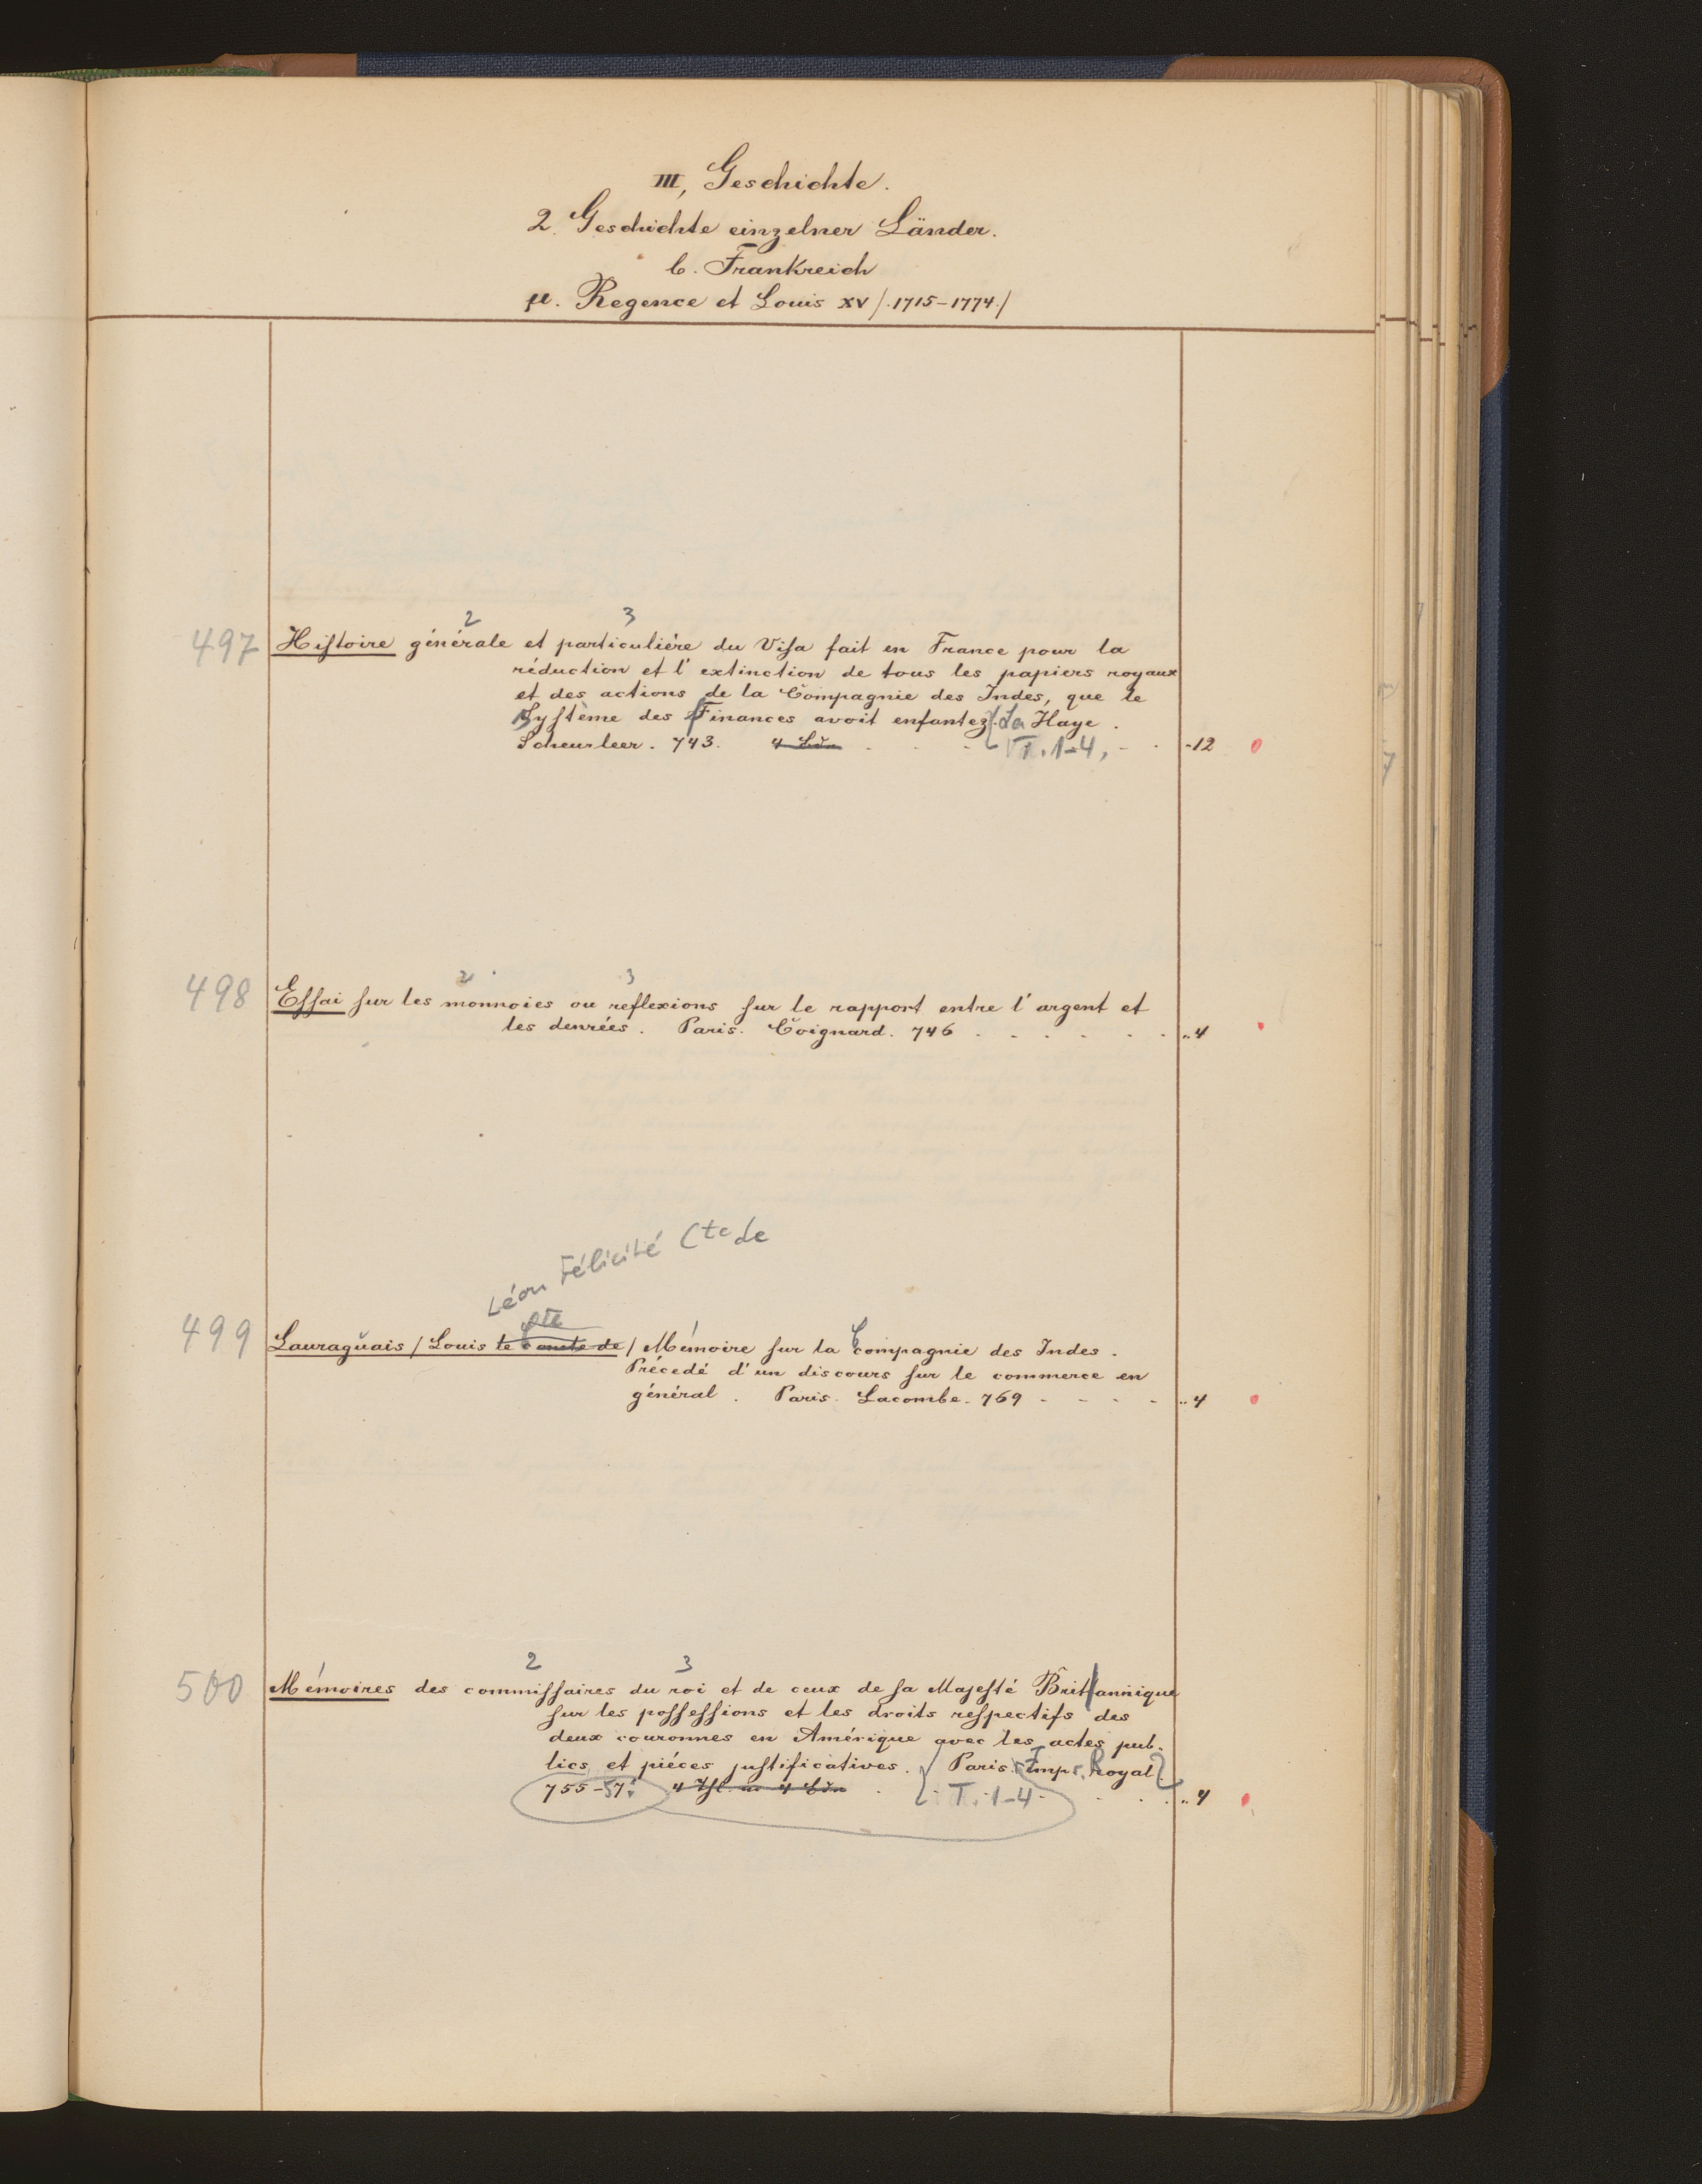 III, Geschichte.
2. Geschichte einzelner Länder.
b. Frankreich
µ. Regence et Louis XV /.1715-1774./
2 3
497 Hiſtoire générale et particuliére du Viſa fait en France pour la
réduction et l'extinction de tous les papiers royaux
et des actions de la Compagnie des Indes, que le
Syſtème des Finances avoit enfantez. La Haye.
Scheurleer. 743. 4 Bdn T. 1-4, -12 0
2 3
498 Eſſai ſur les monnoies ou reflexions ſur le rapport entre l'argent et
les denrées. Paris. Coignard. 746 . . . . . . „4
Léon Félicité Cte de
499 Lauraguais / Louis le Comte de / Mémoire ſur la Compagnie des Indes.
Précedé d'un discours ſur le commerce en
général. Paris. Lacombe. 769 - - - - „4
2 3
500 Mémoires des commiſſaires du roi et de ceux de ſa Majeſté Brittannique
ſur les poſſeſſions et les droits reſpectifs des
deux couronnes en Amérique avec les actes pub-
lics et piéces juſtificatives. Paris. Imp. Royal.
755-57. 4 Thl. in 4 Bdn T. 1-4 „4